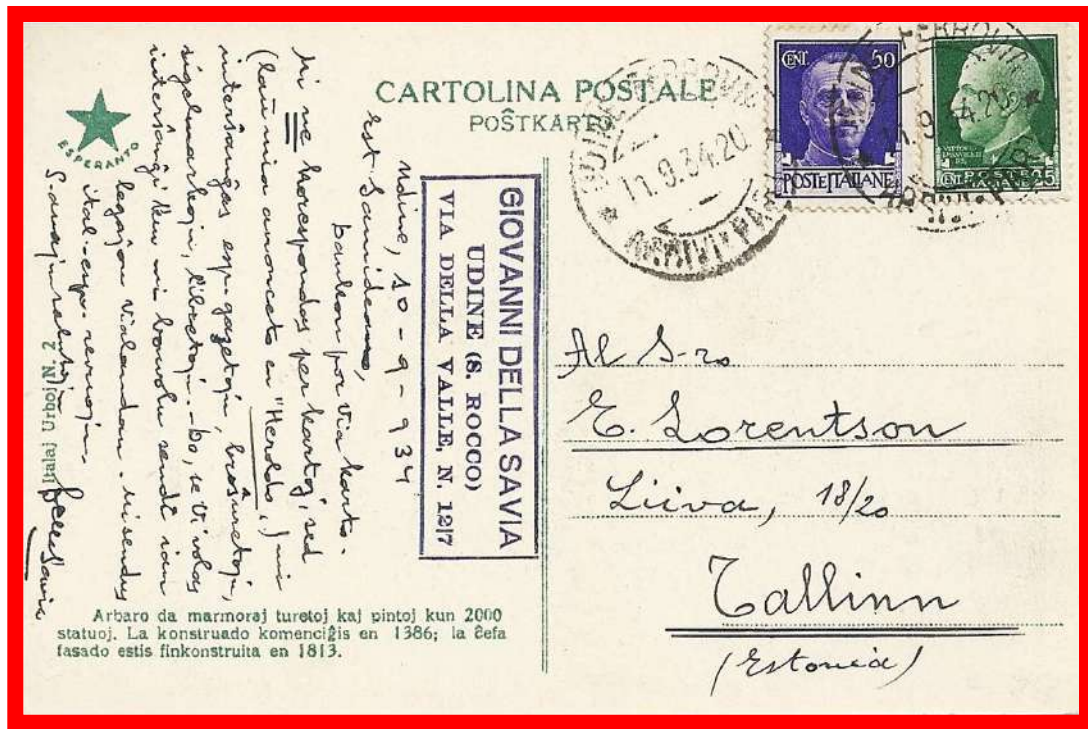 CARTOLINA POSTALE
POŜTKARTO
ESPERANTO
CENT. 50
POSTE ITALIANE
CENT. POSTE 25
UDINE FERROVIA
11.9.34.20
ARRIVI E PAR
FERROVIA
11.9.34.20
GIOVANNI DELLA SAVIA
UDINE (S. ROCCO)
VIA DELLA VALLE, N. 12/7
Udine, 10-9-934
Est. Samideano,
Dankon por via karto.
Mi ne korespondas per kartoj, sed
(laŭ mia anonceto en "Heroldo") mi
interŝanĝas esp. gazetojn, broŝuretojn,
sigelmarkojn, libretojn. - Do, se vi volas
interŝanĝi kun mi bonvolu sendi ian
legaĵon vialandan. Mi sendus
ital-esp. revuojn.
S-anajn salutojn
DellaSavia
Italaj Urboj N. 2
Arbaro da marmoraj turetoj kaj pintoj kun 2000
statuoj. La konstruado komenciĝis en 1386; la ĉefa
fasado estis finkonstruita en 1813.
Al S-ro
E. Lorentson
Liiva, 18/20
Tallinn
(Estonia)